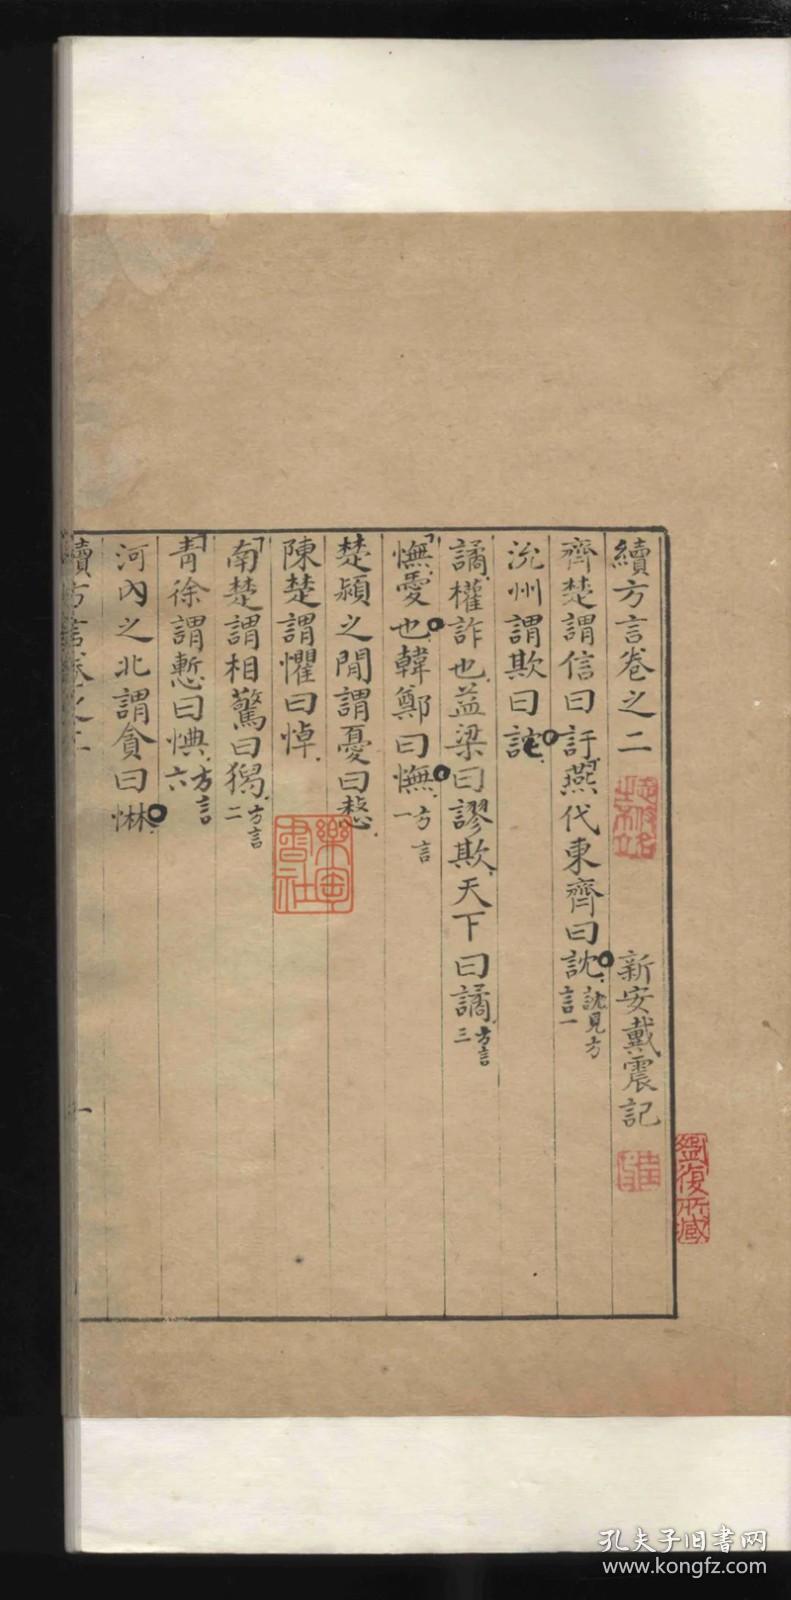 續方言卷之二
新安戴震記
齊楚謂信曰訏燕代東齊曰訦訦見方言一
沇州謂欺曰詑
譎權詐也益梁曰謬欺天下曰譎方言三
憮憂也韓鄭曰憮方言一
楚潁之閒謂憂曰愁
陳楚謂懼曰悼
南楚謂相驚曰獡方言二
青徐謂慙曰㥏方言六
河內之北謂貪曰惏
續方言卷之二
一
鑑復所藏
孔夫子旧書网
www.kongfz.com